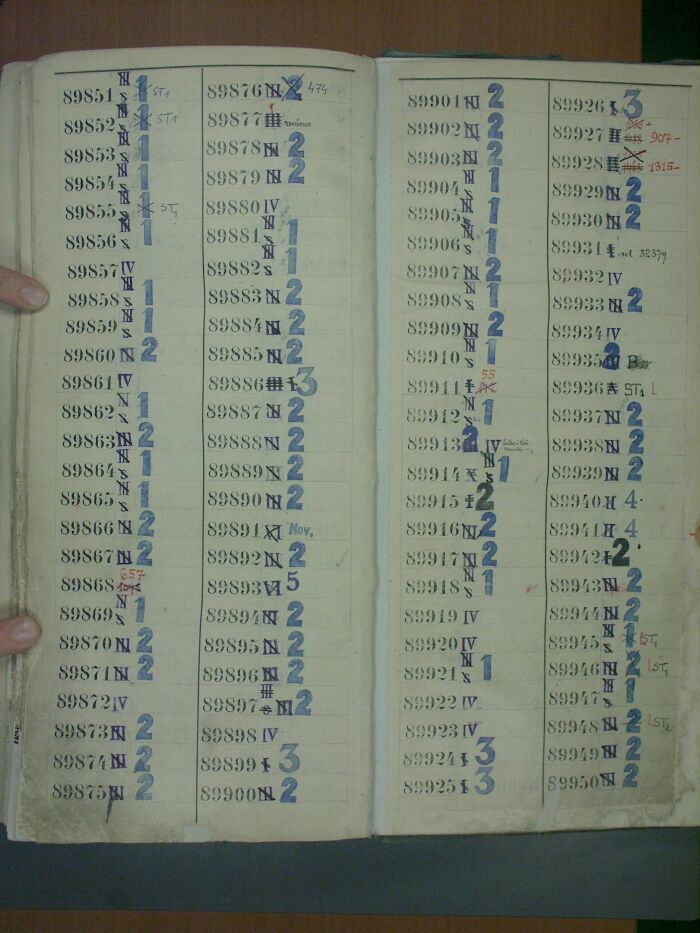 89851 N S 1 ST1
89852 N S 1 ST1
89853 N S 1
89854 N S 1
89855 N S 1 ST1
89856 N S 1
89857 IV
89858 N S 1
89859 N S 1
89860 N 2
89861 IV
89862 N S 1
89863 N 2
89864 N S 1
89865 N S 1
89866 N 2
89867 N 2
89868 657
89869 N S 1
89870 N 2
89871 N 2
89872 IV
89873 N 2
89874 N 2
89875 N 2
89876 N 2 474
89877 III
89878 N 2
89879 N 2
89880 IV
89881 N S 1
89882 N S 1
89883 N 2
89884 N 2
89885 N 2
89886 III I 3
89887 N 2
89888 N 2
89889 N 2
89890 N 2
89891 XI Nov.
89892 N 2
89893 VI 5
89894 N 2
89895 N 2
89896 N 2
89897 III N 2
89898 IV
89899 I 3
89900 N 2
89901 N 2
89902 N 2
89903 N 2
89904 N S 1
89905 N S 1
89906 N S 1
89907 N 2
89908 N S 1
89909 N 2
89910 N S 1
89911 I 55
89912 N S 1
89913 2 IV
89914 X N S 1
89915 I 2
89916 N 2
89917 N 2
89918 N S 1
89919 IV
89920 IV
89921 N S 1
89922 IV
89923 IV
89924 I 3
89925 I 3
89926 I 3
89927 II 907-
89928 1315-
89929 N 2
89930 N 2
89931 I 32379
89932 IV
89933 N 2
89934 IV
89935 2 IV B
89936 A ST1 L
89937 N 2
89938 N 2
89939 N 2
89940 II 4
89941 II 4
89942 I 2
89943 N 2
89944 N 2
89945 N S 1 ST1
89946 N 2 ST1
89947 N S 1
89948 N 2 ST2
89949 N 2
89950 N 2